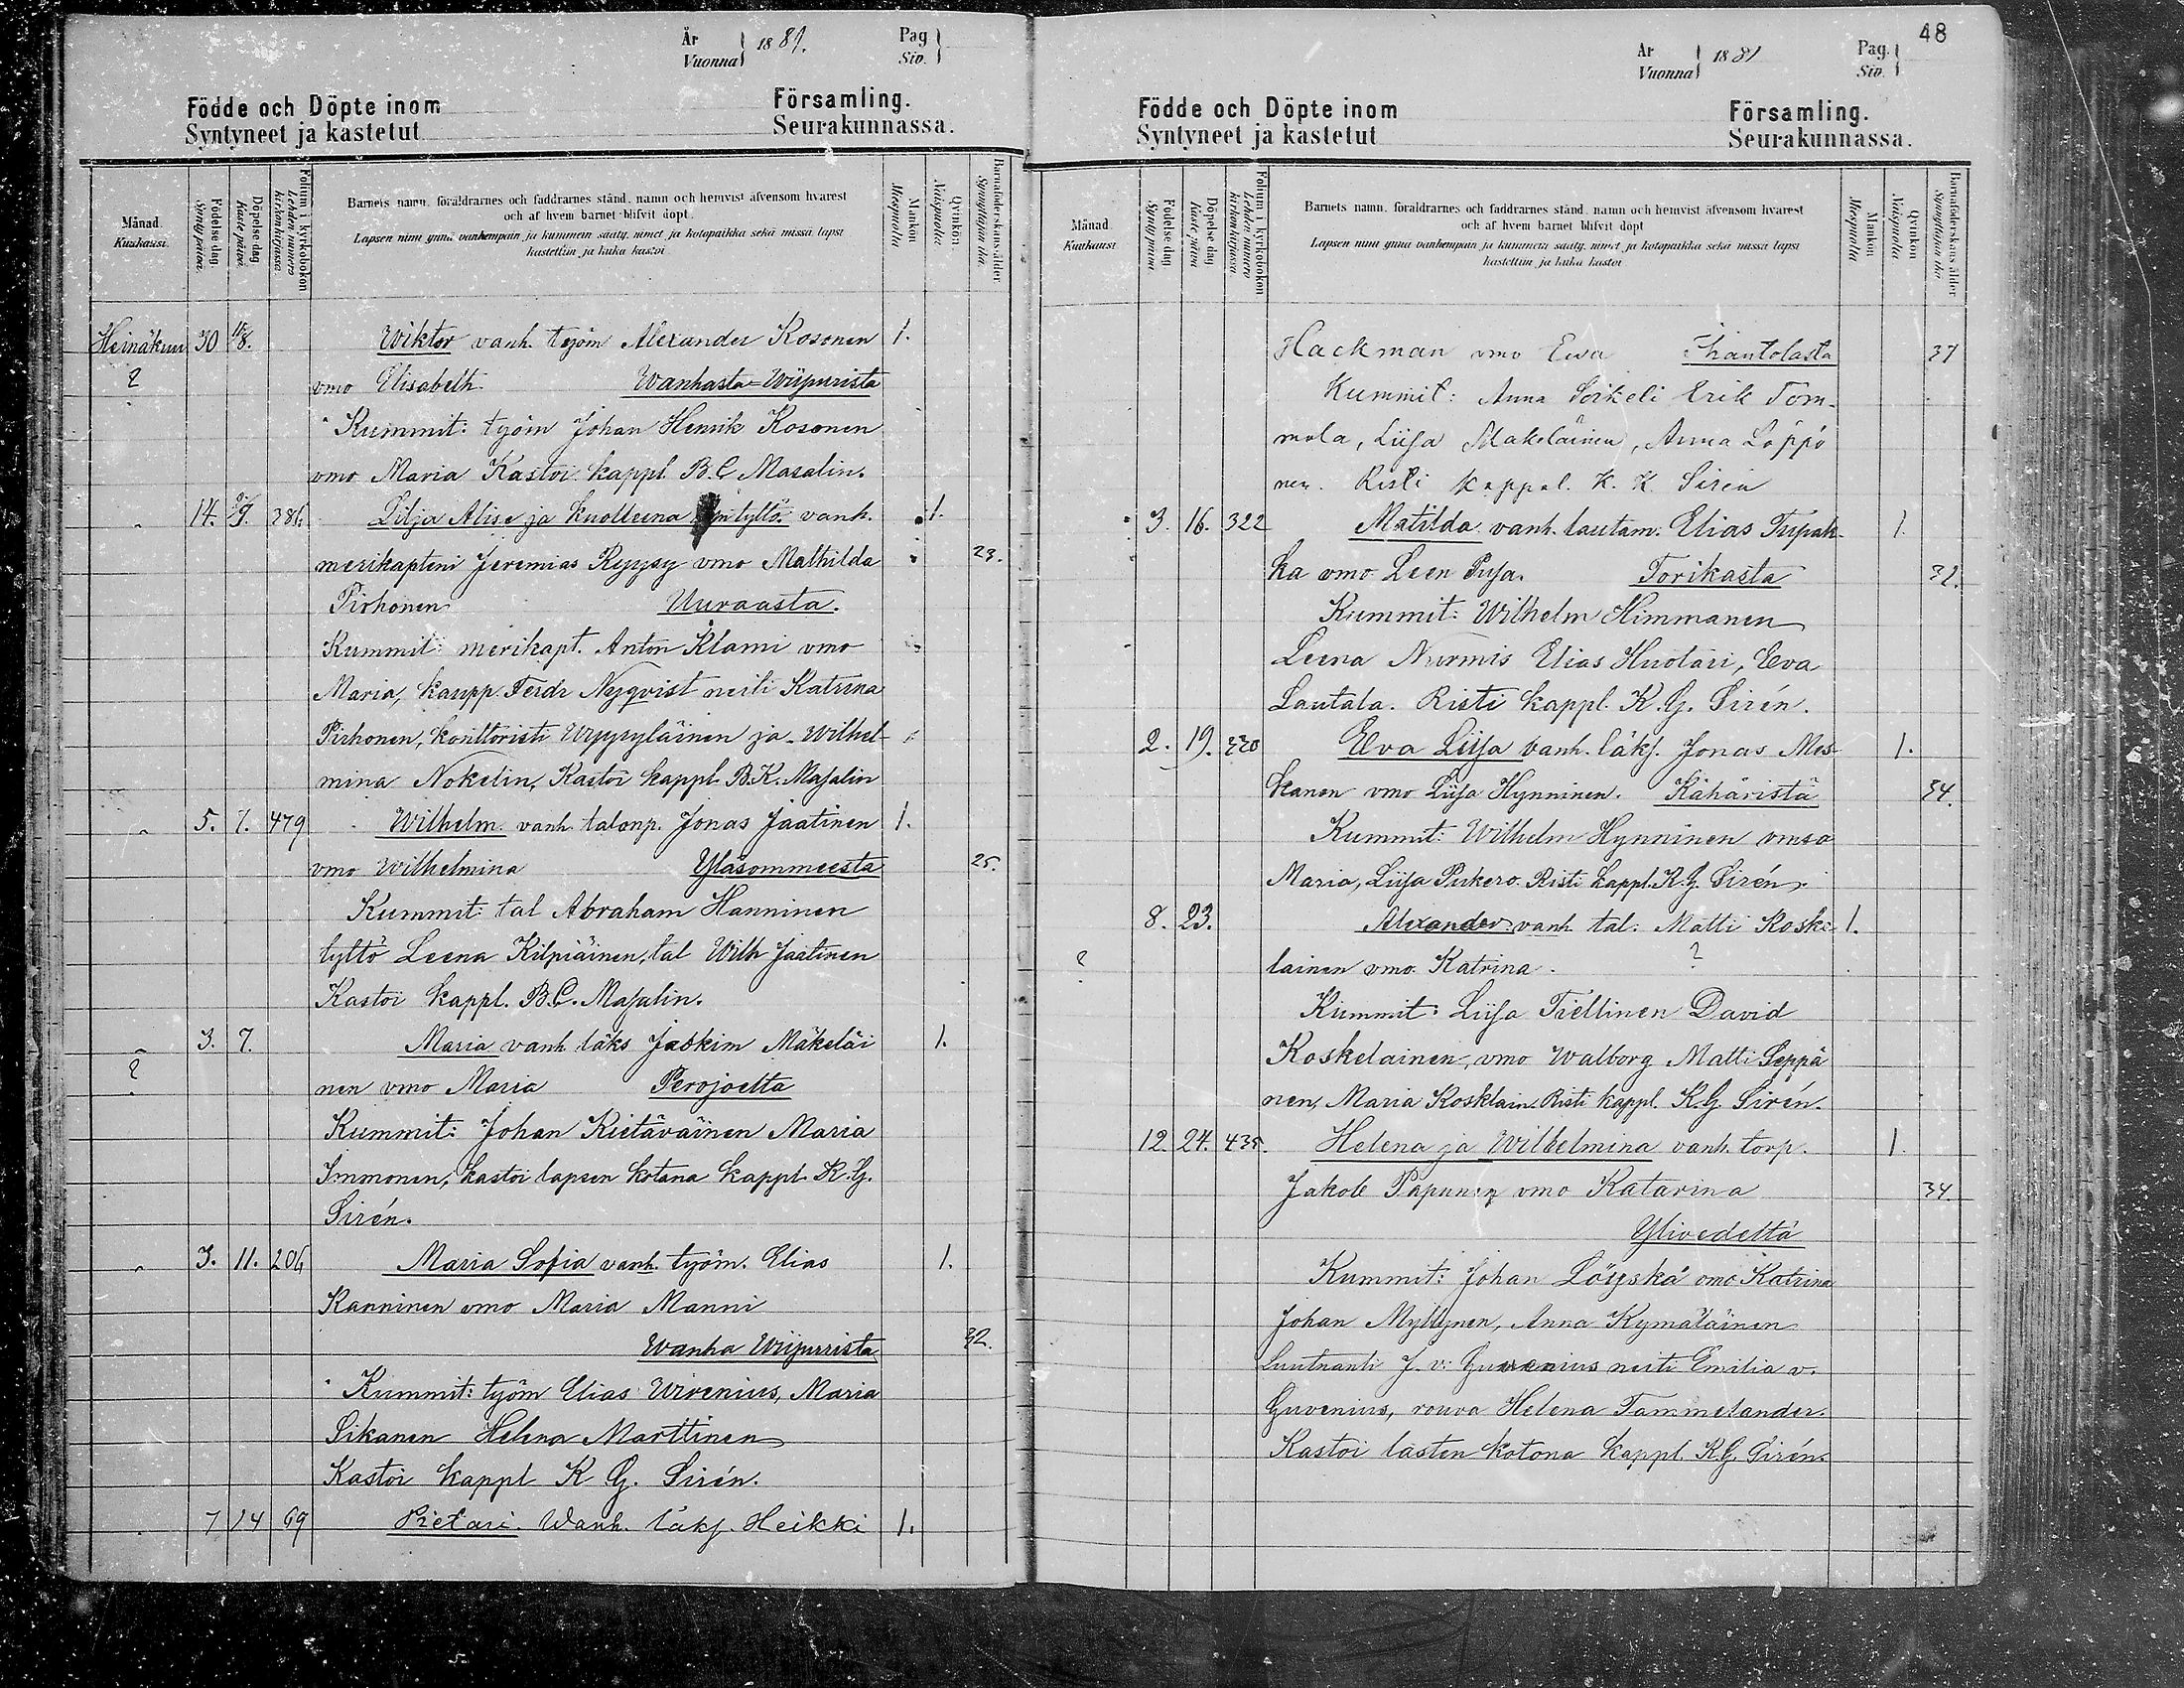 År Vuonna 1881. Pag Siv.
Födde och Döpte inom Församling.
Syntyneet ja kastetut Seurakunnassa.
Månad. Kuukausi.
Födelse dag. Synty päivä.
Döpelse dag Kaste päivä.
Folium i kyrkoboken Lehden numero kirkonkirjassa.
Barnets namn, föräldrarnes och faddrarnes stånd, namn och hemvist äfvensom hvarest
och af hvem barnet blifvit döpt.
Lapsen nimi ynnä vanhempain ja kummein sääty, nimet ja kotopaikka sekä missä lapsi
kastettiin ja kuka kastoi
Mankön Miespuolia
Qvinkön Naispuolia
Barnaföderskans ålder Synnyttäjän ikä.
Heinäkuu 30 11/8. Wiktor vanh. työm Alexander Kosonen 1.
? vmo Elisabeth Wanhasta-Wiipurista
Kummit: työm Johan Henrik Kosonen
vmo Maria Kastoi kappl. B.C Masalin.
14. 386. Lilja Alise ja kuolleena tyttö vanh. 1.
merikapteni Jeremias Ryysy vmo Mathilda 23.
Pirhonen Uuraasta.
Kummit: merikapt. Anton Klami vmo
Maria, kaupp. Ferdr Nyqvist neiti Katrina
Pirhonen, konttoristi Uppyläinen ja Wilhel-
mina Nokelin, Kastoi kappl. B.K. Masalin
5. 7. 479 Wilhelm vanh. talonp. Jonas Jaatinen 1.
vmo Wilhelmina Yläsommeesta 25.
Kummit: tal Abraham Hanninen
tyttö Leena Kilpiäinen, tal Wilh Jaatinen
Kastoi kappl. B.C. Masalin.
3. 7. Maria vanh läks Joakim Mäkeläi 1.
? nen vmo Maria Perojoelta
Kummit: Johan Kietäväinen Maria
Immonen, kastoi lapsen kotana kappl. K.G.
Sirén.
3. 11. 206 Maria Sofia vanh. työm. Elias 1.
Kanninen vmo Maria Manni
Wanha Wiipurista 32.
Kummit: työm Elias Wirenius, Maria
Sikanen Helena Marttinen
Kastoi kappl K G. Sirén.
7 14 69 Pietari. Wanh. läks. Heikki 1.
48
År Vuonna 1881 Pag. Siv.
Födde och Döpte inom Församling.
Syntyneet ja kastetut Seurakunnassa.
Månad. Kuukausi
Födelse dag Synty päivä
Döpelse dag Kaste päivä
Folium i kyrkoboken Lehden numero kirkonkirjassa
Barnets namn, föräldrarnes och faddrarnes stånd, namn och hemvist äfvensom hvarest
och af hvem barnet blifvit döpt
Lapsen nimi ynnä vanhempain ja kummein sääty, nimet ja kotopaikka sekä missä lapsi
kastettiin ja kuka kastoi
Mankön Miespuolia
Qvinkön Naispuolia
Barnaföderskans ålder Synnyttäjän ikä
Hackman vmo Ewa Ihantolasta 37
Kummit: Anna Sorkeli Erik Tom-
mola, Liisa Mäkeläinen, Anna Löppö
nen. Risti kappal. K. K. Sirén
3. 16. 322 Matilda vanh. lautam. Elias Tupak- 1.
ka vmo Leen Pusa. Torikasta 32.
Kummit: Wilhelm Himmanen
Leena Nurmis Elias Huotari, Eeva
Lautala. Risti kappl. K.G. Sirén.
2. 19. 220 Eeva Liisa vanh. läks. Jonas Mes- 1.
kanen vmo Liisa Hynninen. Kähäristä 34.
Kummit: Wilhelm Hynninen vmso
Maria, Liisa Pukero. Risti kappl. K.G. Sirén.
8. 23. Alexander vanh tal. Matti Koske- 1.
? lainen vmo Katrina. ?
Kummit: Liisa Tiellinen David
Koskelainen, vmo Walborg Matti Seppä
nen, Maria Kosklain. Risti kappl. K.G Sirén.
12. 24. 435. Helena ja Wilhelmina vanh. torp. 1
Jakob Papunen vmo Katarina 34.
Ylivedeltä
Kummit: Johan Löyskä vmo Katrina
Johan Myllynen, Anna Kymäläinen
Luutnanti J. v. Guvenius neiti Emilia v.
Guvenius, rouva Helena Tammelander.
Kastoi lasten kotona kappl. K.G. Sirén.